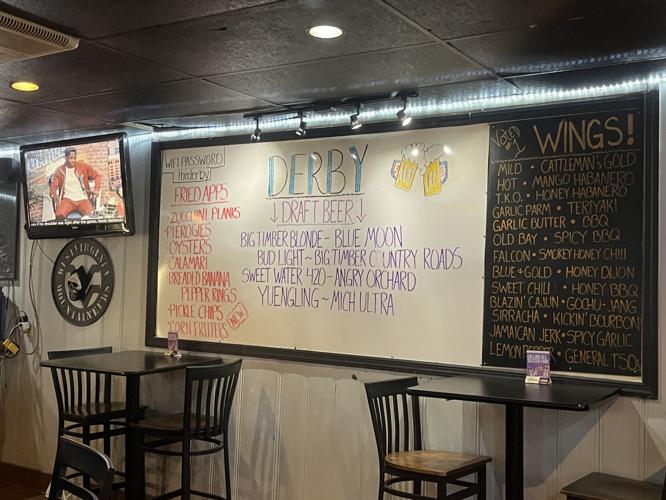 WIFI PASSWORD
thederby
FRIED APPS
• ZUCCHINI PLANKS
• PIEROGIES
• OYSTERS
• CALAMARI
• BREADED BANANA
PEPPER RINGS
• PICKLE CHIPS
• CORN FRITTERS
NEW
DERBY
↓ DRAFT BEER ↓
BIG TIMBER BLONDE ~ BLUE MOON
BUD LIGHT ~ BIG TIMBER COUNTRY ROADS
SWEET WATER 420 ~ ANGRY ORCHARD
YUENGLING ~ MICH ULTRA
VOTED #1
WINGS!
MILD • CATTLEMAN's GOLD
HOT • MANGO HABANERO
T.K.O. • HONEY HABANERO
GARLIC PARM • TERIYAKI
GARLIC BUTTER • BBQ
OLD BAY • SPICY BBQ
FALCON • SMOKEY HONEY CHILI
BLUE & GOLD • HONEY DIJON
SWEET CHILI • HONEY BBQ
BLAZIN' CAJUN • GOCHU-JANG
SIRRACHA • KICKIN' BOURBON
JAMAICAN JERK • SPICY GARLIC
LEMON • GENERAL TSO's
WEST VIRGINIA
MOUNTAINEERS